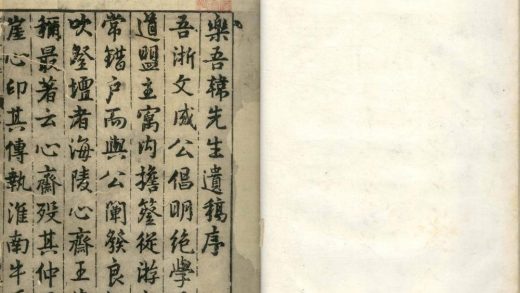 樂吾韓先生遺稿序
吾浙文成公倡明絕學
道盟主寓內擔簦從游
常錯戶而與公闡發良
吹登壇者海陵心齋王
稱最著云心齋歿其仲
崖心印其傳執淮南牛